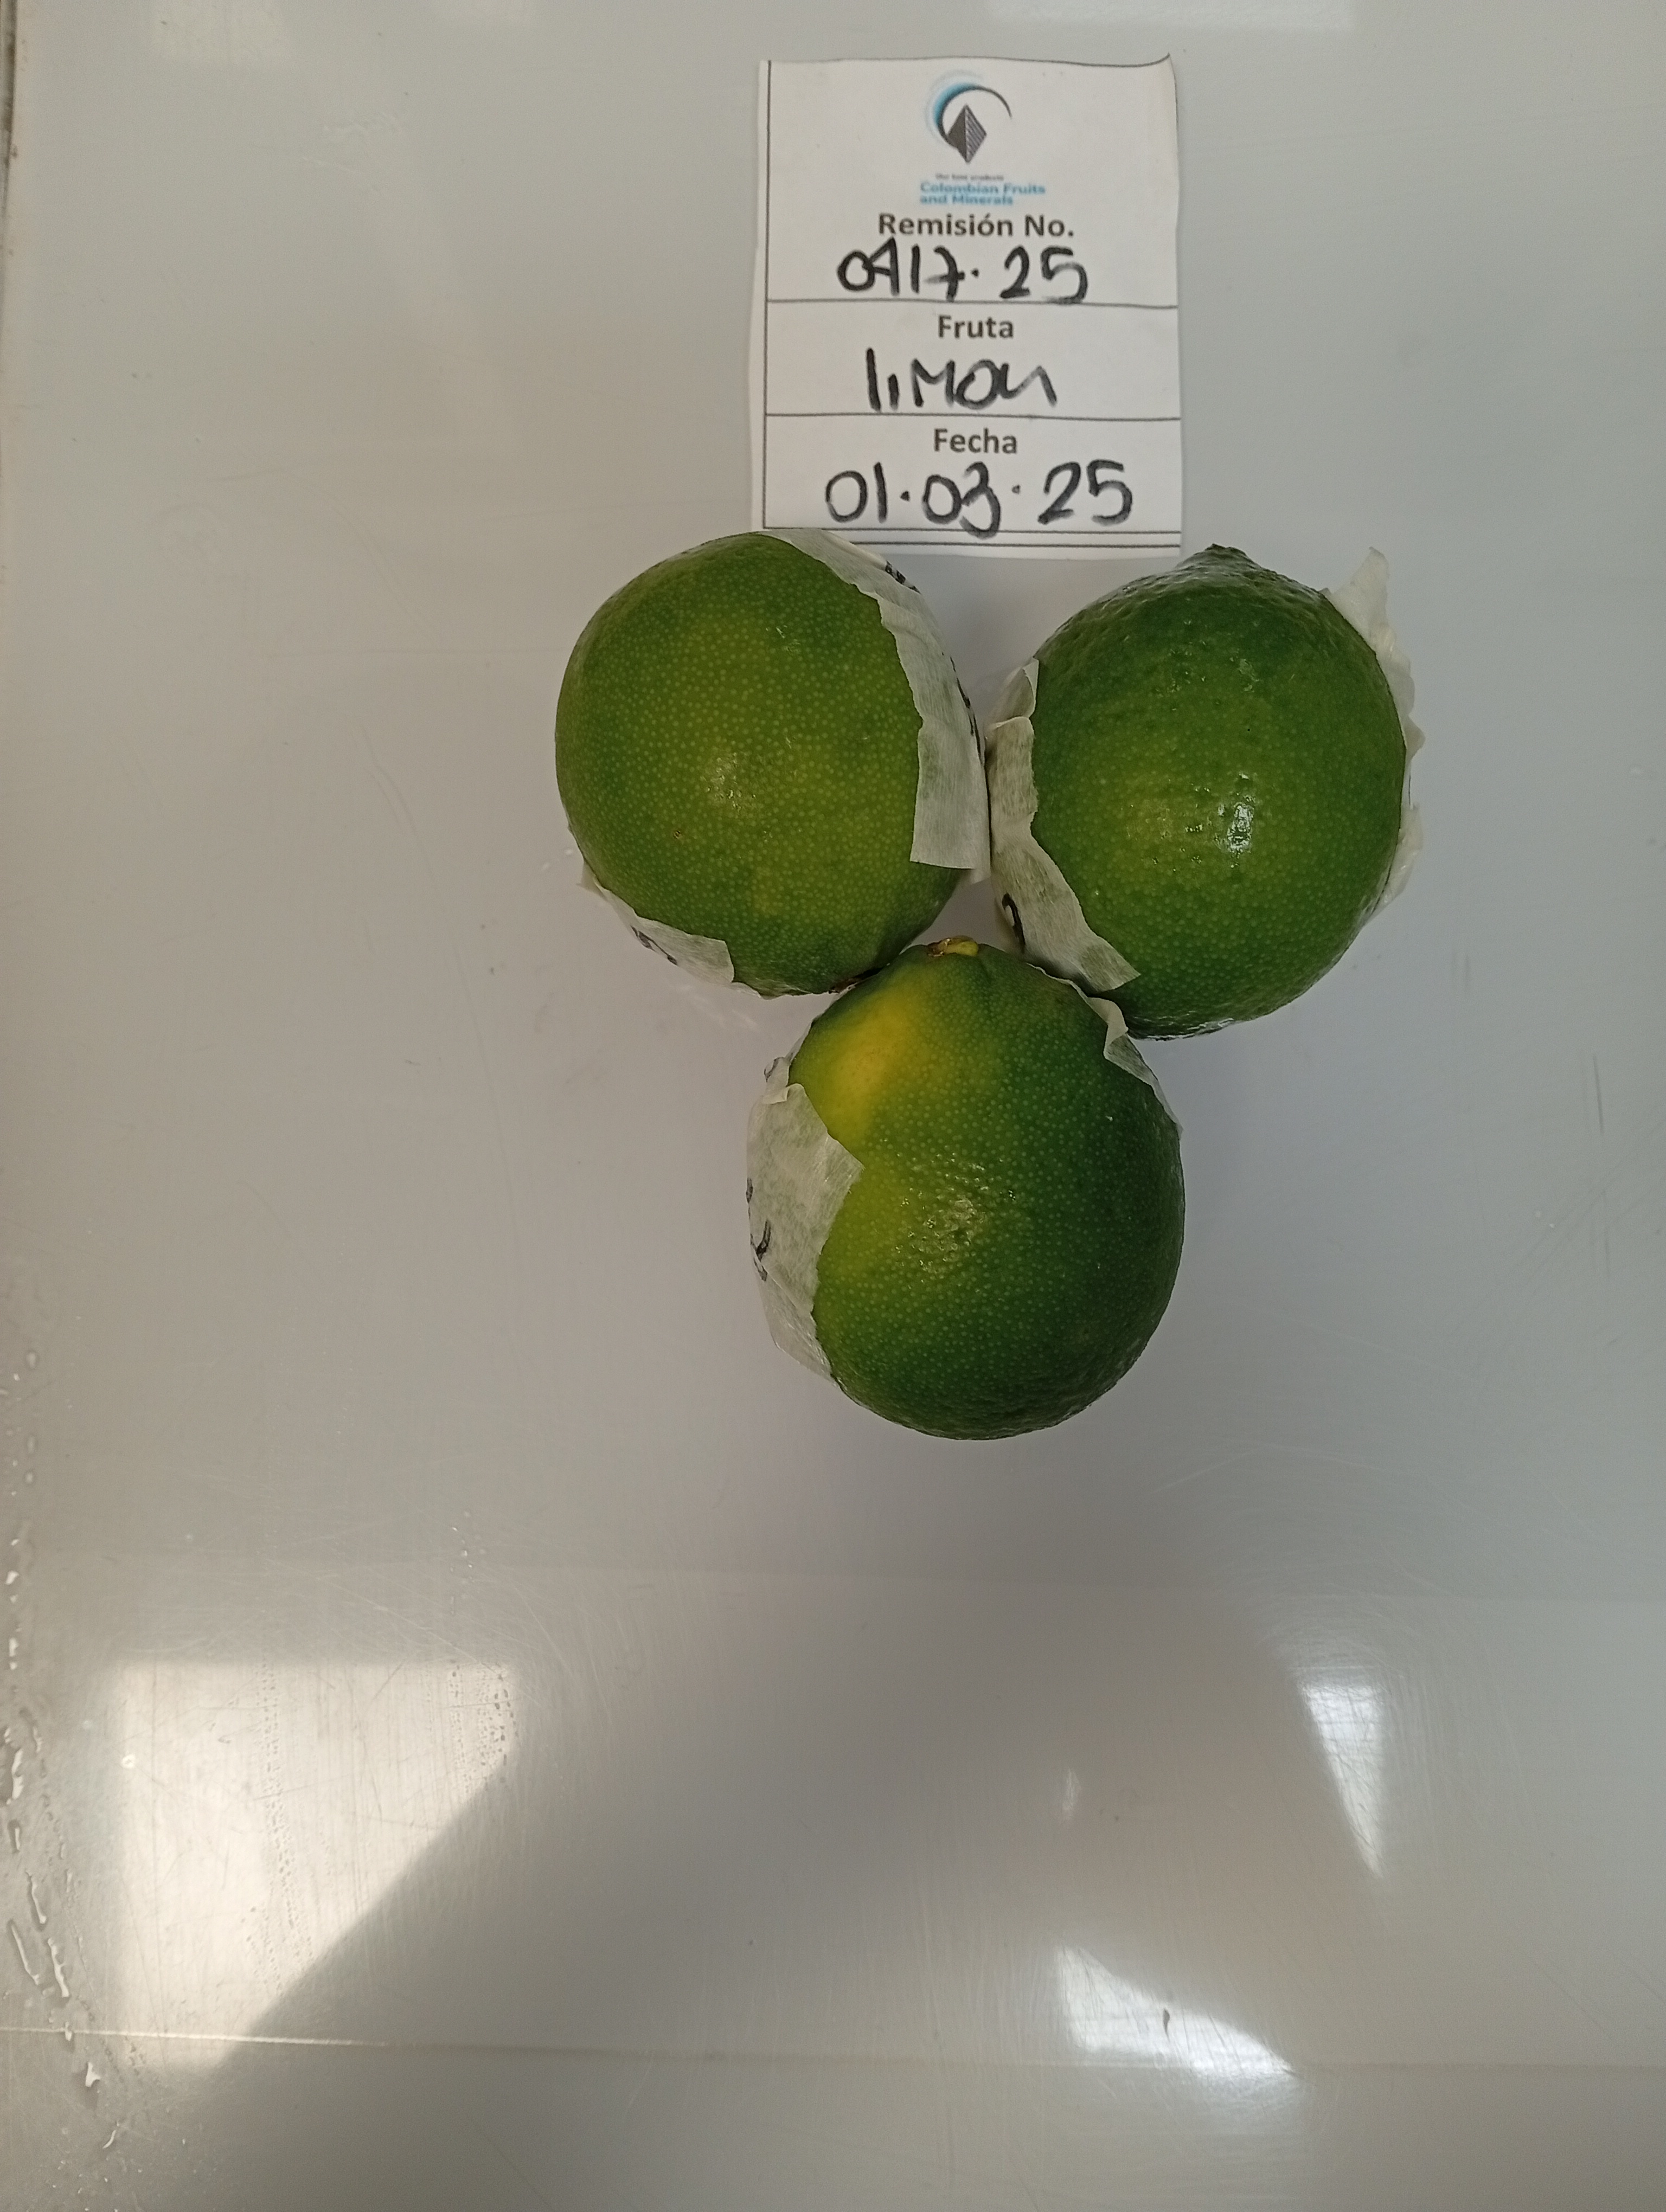 the best products
Colombian Fruits
and Minerals
Remisión No.
0417·25
Fruta
limon
Fecha
01·03·25